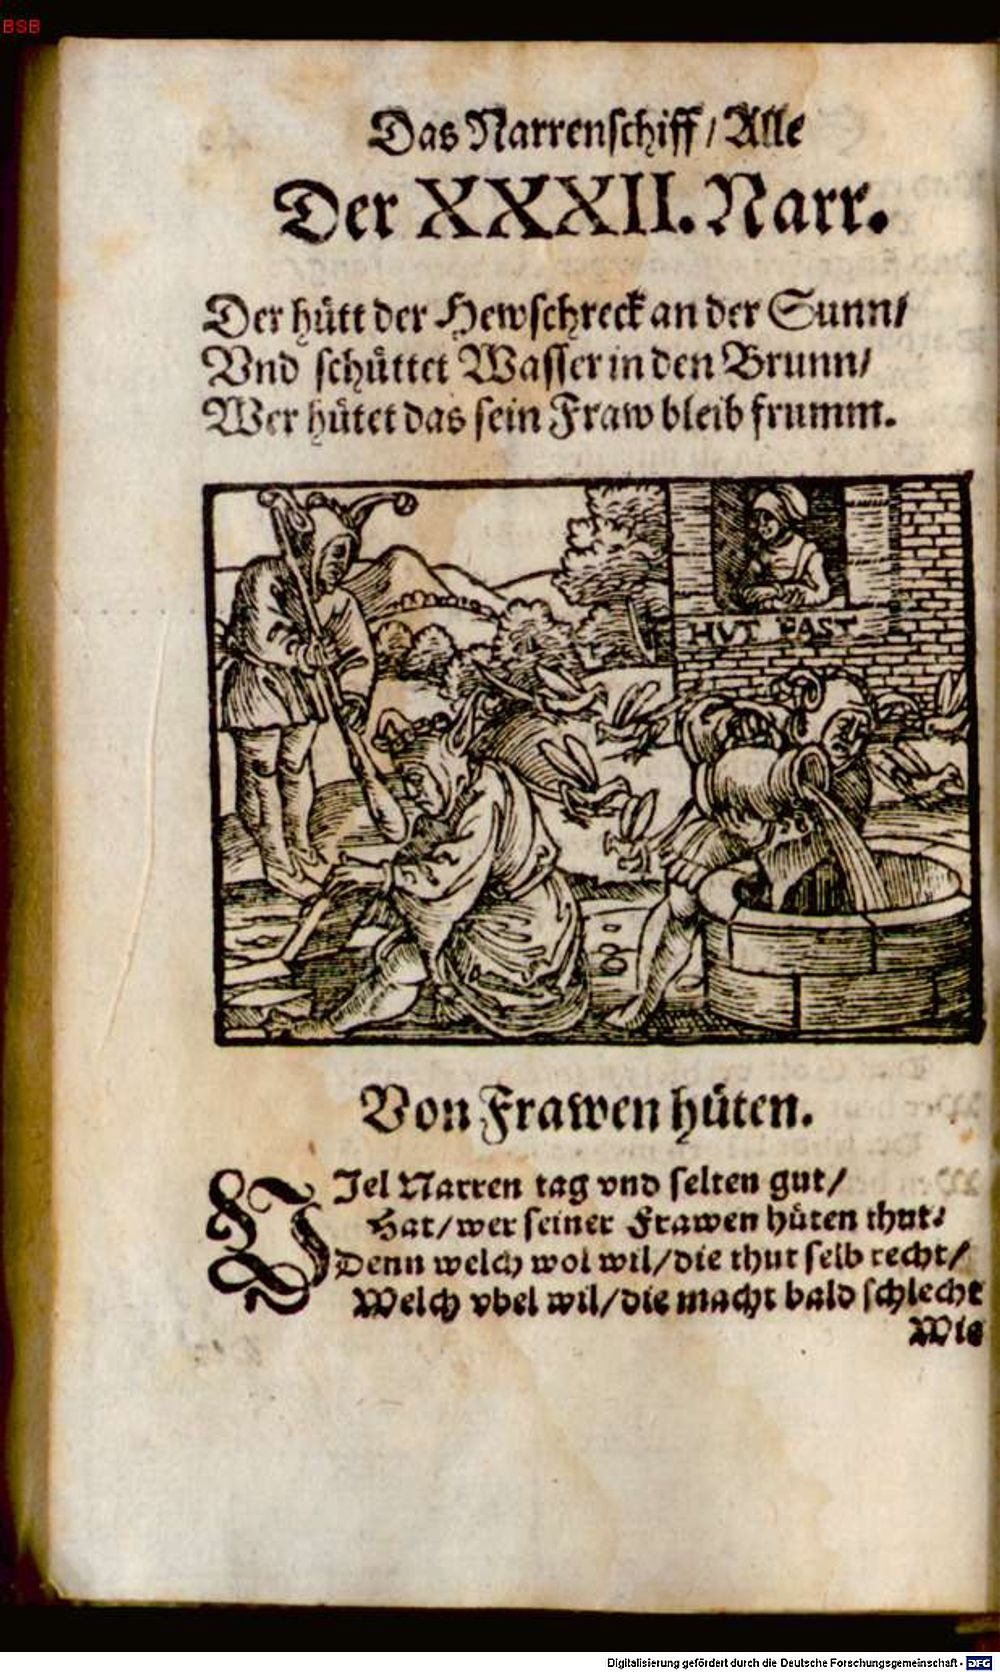 BSB
Das Narrenſchiff / Alle
Der XXXII. Narr.
Der hütt der Hewſchreck an der Sunn /
Vnd ſchüttet Waſſer in den Brunn /
Wer hütet das ſein Fraw bleib frumm.
HVT FAST
Von Frawen hüten.
VJel Narren tag vnd ſelten gut /
Hat / wer ſeiner Frawen hüten thut:
Denn welch wol wil / die thut ſelb recht /
Welch vbel wil / die macht bald ſchlecht
Wie
Digitalisierung gefördert durch die Deutsche Forschungsgemeinschaft - DFG